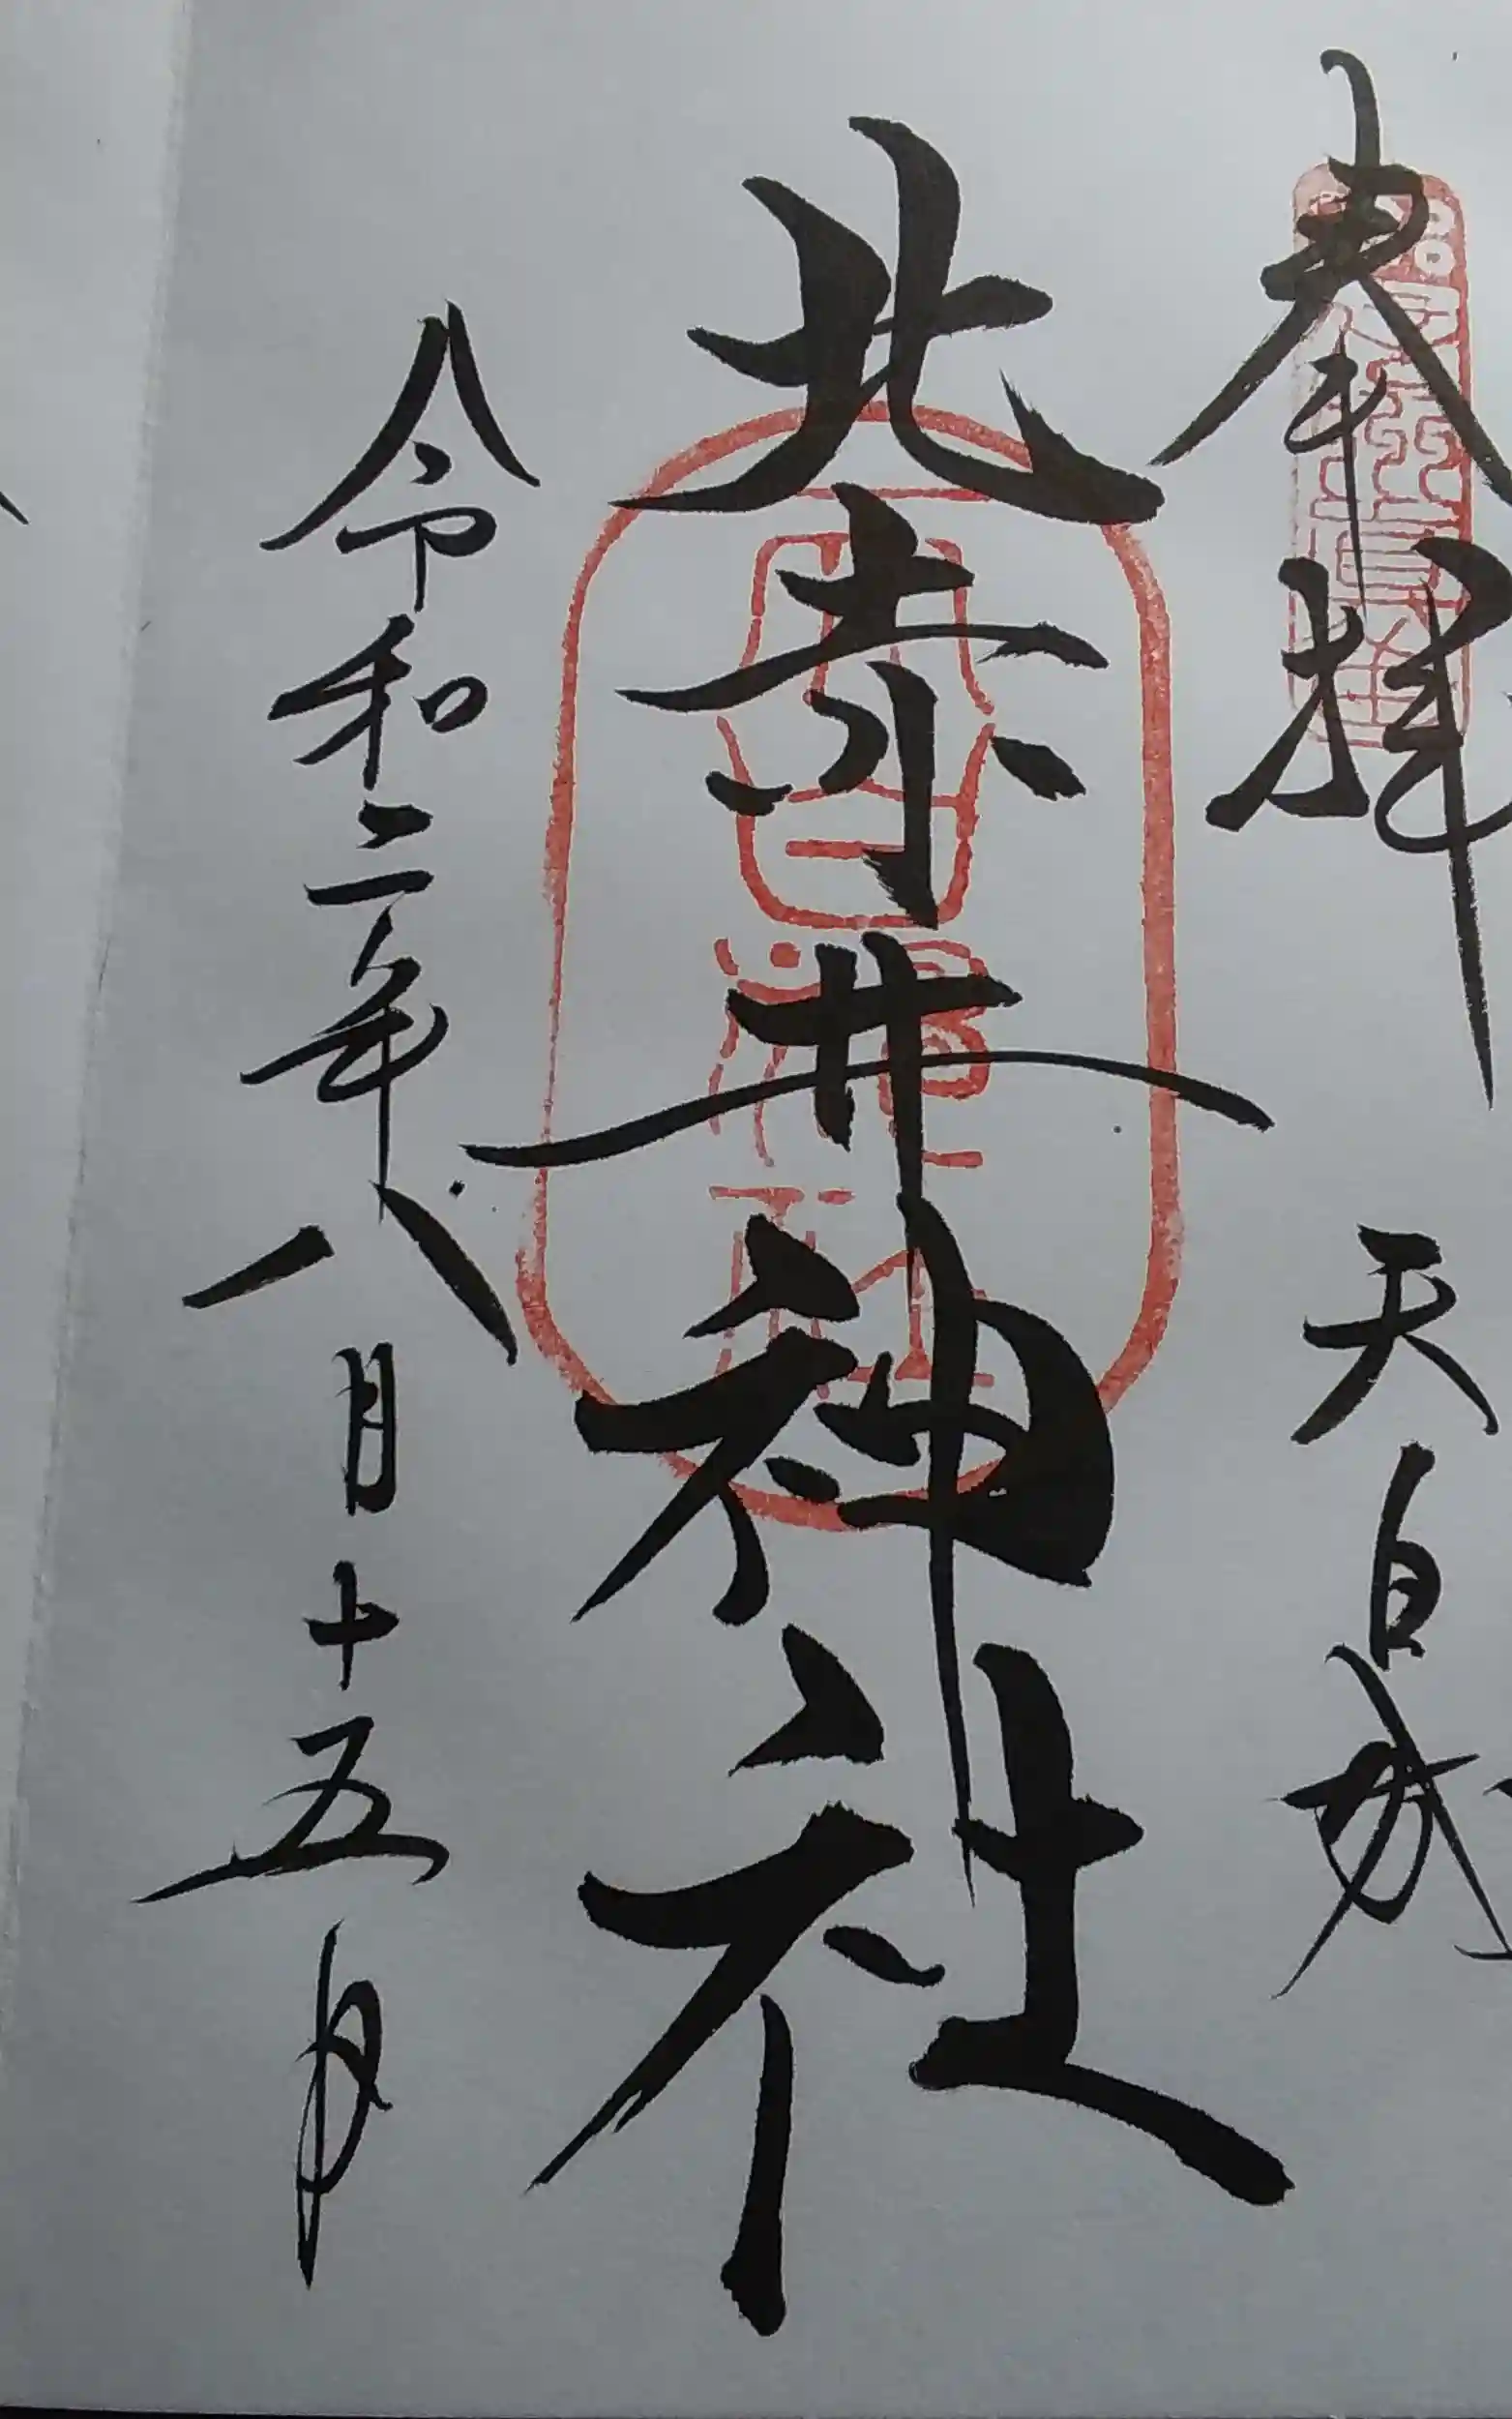 奉拝 天白城
北赤井神社
令和二年八月十五日